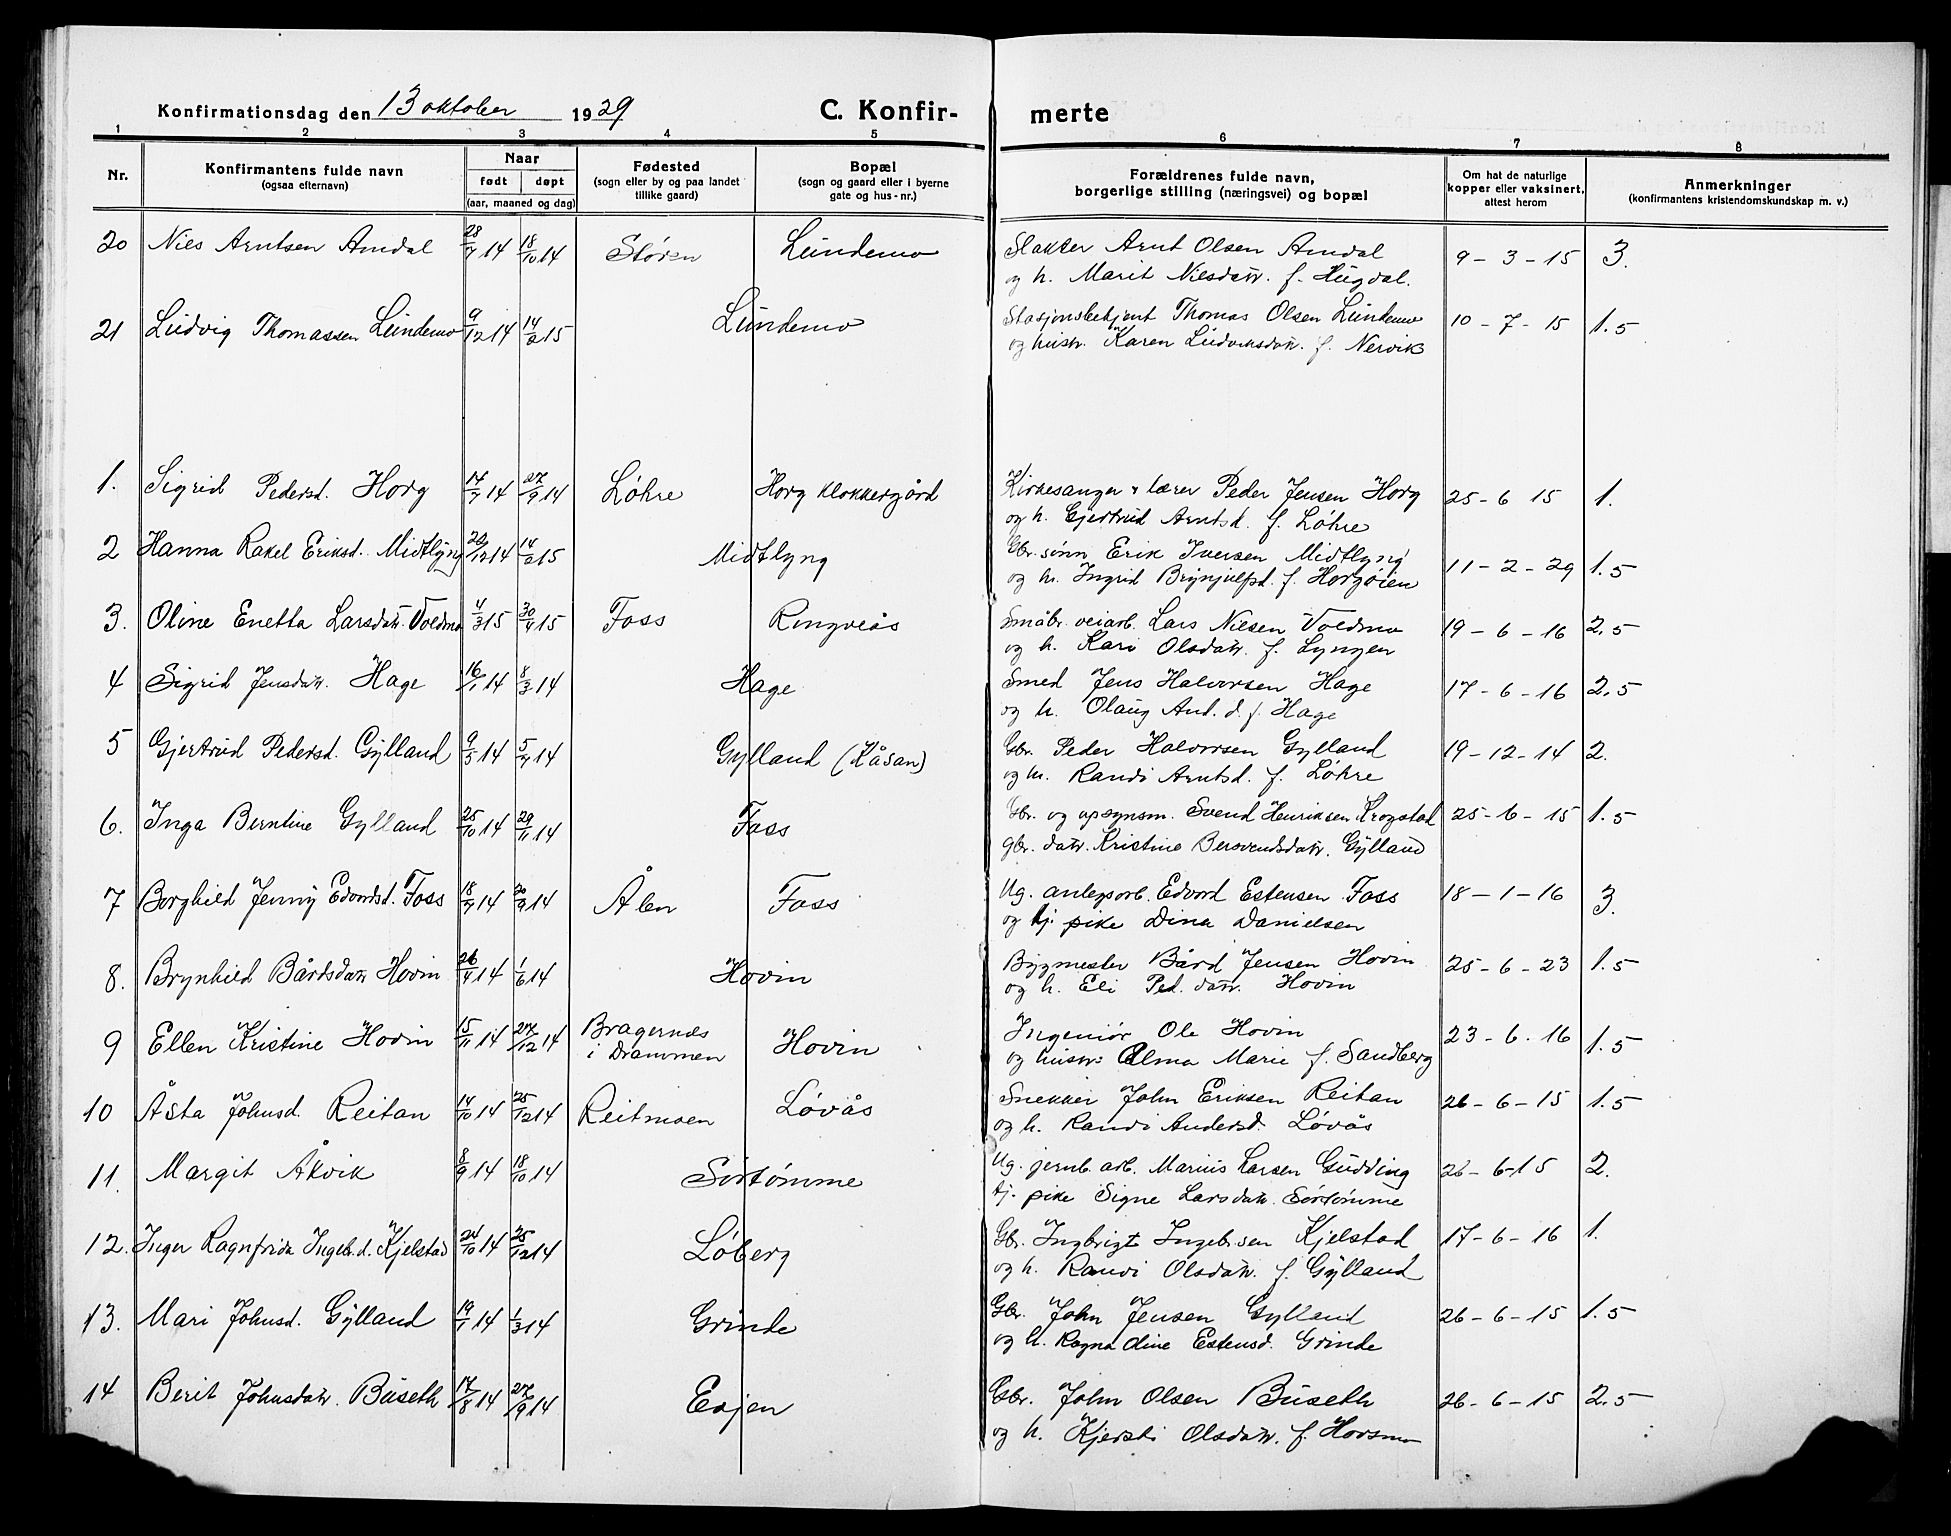 Konfirmationsdag den 13 oktober 1929 C. Konfir- merte
1 2 3 4 5 6 7 8
Nr. Konfirmantens fulde navn (ogsaa efternavn) Naar født døpt (aar, maaned og dag) Fødested (sogn eller by og paa landet tillike gaard) Bopæl (sogn og gaard eller i byerne gate og hus-nr.) Forældrenes fulde navn, borgerlige stilling (næringsvei) og bopæl Om hat de naturlige kopper eller vaksinert, attest herom Anmerkninger (konfirmantens kristendomskundskap m. v.)
20 Nils Arntsen Amdal 28/7 14 18/10 14 Støren Lundemo Slakter Arnt Olsen Amdal 9-3-15 3.
og h. Marit Nilsdatr. f. Hugdal.
21 Ludvig Thomassen Lundemo 9/12 14 14/2 15 Lundemo Stasjonsbetjent Thomas Olsen Lundemo 10-7-15 1.5
og hustr. Karen Ludvksdatr. f. Nervik
1. Sigrid Pedersd. Horg 14/7 14 27/9 14 Løhre Horg klokkergård Kirkesanger & lærer Peder Jensen Horg 25-6 15 1.
og h. Gjertrud Arntsd. f. Løhre
2 Hanna Rakel Eriksd. Midtlyng 20/12 14 14/2 15 Midtlyng Gbr. sønn Erik Iversen Midtlyng 11-2-29 1.5
og h. Ingrid Brynjulfsd. f. Horgøien
3. Oline Enetta Larsdatr. Voldmo 4/3 15 30/4 15 Foss Ringveås Småbr. veiarb. Lars Nilsen Voldmo 19-6-16 2.5
og h. Kari Olsdatr. f. Lyngen
4 Sigrid Jensdatr. Hage 16/1 14 8/3 14 Hage Smed Jens Halvorsen Hage 17-6-16 2.5
og h. Olaug And. d. f. Hage
5 Gjertrud Pedersd. Gylland 9/3 14 5/4 14 Gylland (Kåsan) Gbr. Peder Halvorsen Gylland 19-12-14 2.
og h. Randi Arntsd. f. Løhre
6. Inga Berntine Gylland 25/10 14 29/11 14 Foss Gbr. og opsynsm. Svend Henriksen Krogstad 25-6-15 1.5
gbr. datr. Kristine Bersvendsdatr. Gylland
7 Borghild Jenny Edvardsd. Foss 18/7 14 20/9 14 Ålen Foss Ug. anlegsarb. Edvard Estensen Foss 18-1-16 3.
og tj. pike Dina Danielsen
8. Brynhild Bårdsdatr. Hovin 26/4 14 1/6 14 Hovin Bygmester Bård Jensen Hovin 25-6-23 1.5
og h. Eli Ped. datr. Hovin
9 Ellen Kristine Hovin 15/11 14 27/12 14 Bragernes i Drammen Hovin Ingeniør Ole Hovin 23-6-16 1.5
og hustr: Alma Marie f. Sandberg
10 Åsta Johnsd. Reitan 14/10 14 25/12 14 Reitmoen Løvås Snekker John Eriksen Reitan 26-6-15 1.5
og h. Randi Andersd. Løvås
11. Margit Åkvik 8/9 14 18/10 14 Sørtømme Ug. jernb. arb. Marius Larsen Gudding 26-6-15 2.
tj. pike Signe Larsdatr. Sørtømme
12. Inger Ragnfrida Ingebr.d. Kjelstad 24/10 14 25/12 14 Løberg Gbr. Ingbrigt Ingebrsen Kjelstad 17-6-16 1.
og h. Randi Olsdatr. f. Gylland
13. Mari Johnsd. Gylland 19/1 14 1/3 14 Grinde Gbr. John Jensen Gylland 26-6-15 1.5
og h. Ragna Oline Estensd. Grinde
14 Berit Johnsdatr. Buseth 17/8 14 27/9 14 Evjen Gbr. John Olsen Buseth 26-6-15 2.5
og h. Kjersti Olsdatr. f. Horsmo